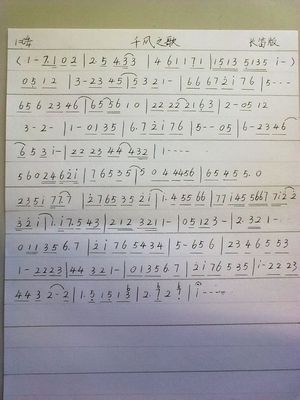 千风之歌 长笛版
(1-7.102|2.5 4.33|461171|1513 5135 i-)
0512|3-2345|5321-|66672i76|5---
656 2346|65 5610|2222163|2-0512
3-2-|1-0135|6.72i76|5--05|6-2346
653i-|2223 44432|1----
5602462i|76535|5044456|65455.0
235i77|2765352i|1.45566|77145566772
32i|1.i7.543|212 321|-05123-|2.321--
011356.7|2i765434|5-656|23465 53
1-2223|44321-|01356.7|2i76535|i-2223
4432-2|1.51513|2.727|i----